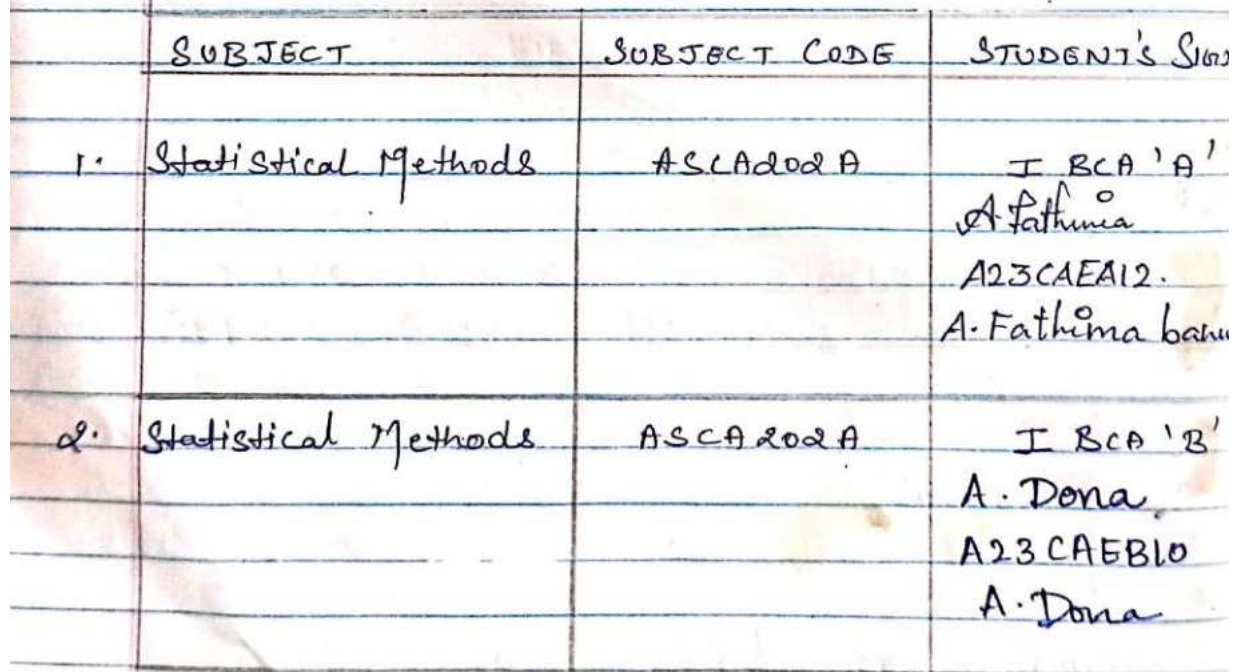 SUBJECT SUBJECT CODE STUDENT'S
1. Statistical Methods ASCA202A I BCA 'A'
A Fathima
A23CAEA12.
A. Fathima
2. Statistical Methods ASCA202A I BCA 'B'
A. Dona
A23CAEB10
A. Dona